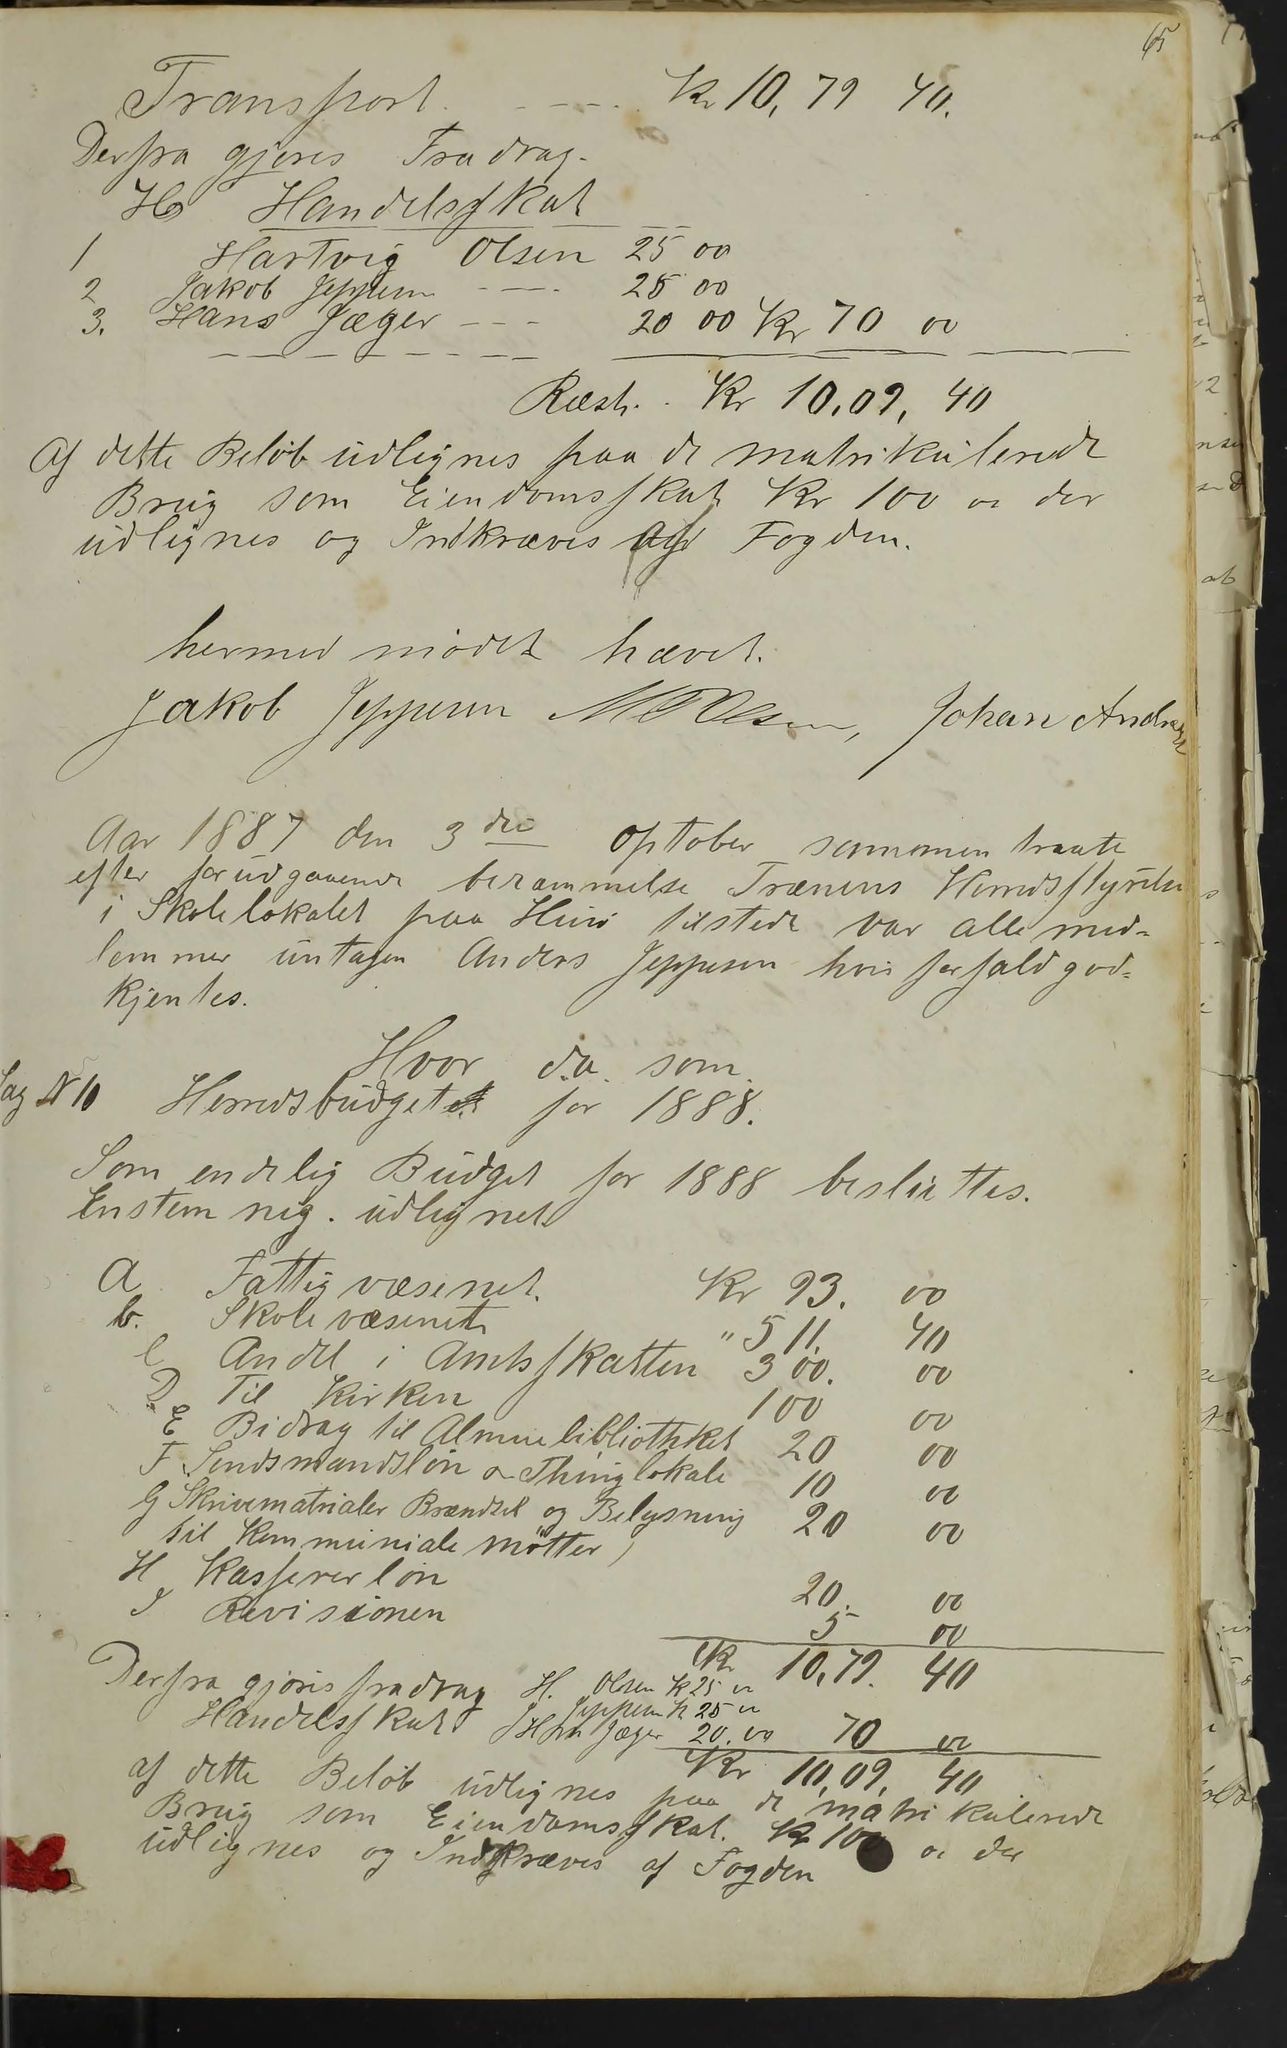 65
Transport. - - - - Kr 10,79 40.
Derfra gjøres Fradrag.
H Handelsskat
1 Hartvig Olsen 25 00
2 Jakob Jeppesen - - - 25 00
3. Hans Jæger - - - 20 00 Kr 70 00
Ræst. Kr 10,09, 40
Af dette Beløb udlignes paa de matrikulerede
Brug som Eiendomsskat Kr 100 00 der
udlignes og Indkræves af Fogden.
hermed mödet hævet.
Jakob Jeppesen M Olsen, Johan Andreas
Aar 1887 den 3die optober sammen traate
efter forudgaaende berammelse Trænens Herredsstyrelse
i Skolelokalet paa Husø tilstede var alle med=
lemmer untagen Anders Jeppesen hvis forfald god=
kjentes.
Hvor da som
Sag N 10 Herredsbudget for 1888.
Som endelig Budget for 1888 besluttes.
Enstemnig. udlignet
A Fattigvæsenet. Kr 93. 00
b. Skolevæsenet " 511. 40
C Andel i Amtsskatten 300. 00
D. Til Kirken 100 00
E Bidrag til Almuebibliotheket 20 00
F Lendsmandsløn o Thinglokale 10 00
G Skrivematrialer Brændsel og Belysning 20 00
til Kommuniale møtter)
H Kassererløn 20. 00
I Revisionen 5 00
Kr 10,79. 40
Derfra gjøris fradrag H. Olsen K 25 00
Handelsskat J Jeppesen K 25 00
Hans Jæger 20.00 70 00
Kr 10,09, 40
af dette Beløb udlignes paa de matrikulerede
Brug som Eiendomsskat. Kr 100 00 der
udlignes og Indkræves af Fogden